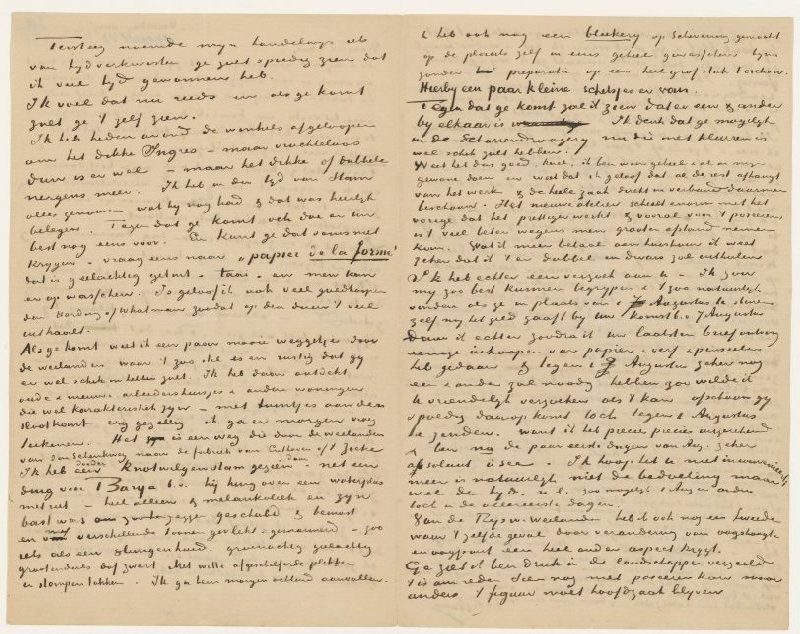 Tersteeg noemde mijn handelwijs als
van tijd verknoeien ge zult spoedig zien dat
ik veel tijd gewonnen heb.
Ik voel dat nu reeds en als ge komt
zult ge 't zelf zien.
Ik heb heden avond de winkels afgeloopen
om het dikke Ingres – maar vruchteloos
dun is er wel – maar het dikke of dubbele
nergens meer. Ik heb in der tijd van Stam
alles genomen wat hij nog had & dat was heerlijk
belegen. Tegen dat ge komt och doe er uw
best nog eens voor. En kunt ge dat soms niet
krijgen – vraag eens naar "papier de la forme"
dat is geelachtig getint – taai – en men kan
er op wasschen. Is geloof ik ook veel goedkooper
dan Harding of Whatman zoodat op den duur 't veel
uithaalt.
Als ge komt weet ik een paar mooie weggetjes door
de weilanden waar 't zoo stil is en rustig dat gij
er wel schik in hebben zult. Ik heb daar ontdekt
oude & nieuwe arbeidershuisjes & andere woningen
die wel karakteristiek zijn – met tuintjes aan den
slootkant erg gezellig ik ga er morgen vroeg
teekenen. Het is een weg die door de weilanden
van Schenkweg naar de fabriek van Enthoven of 't Zieke
Ik heb daar een dooden knotwilgenstam gezien – net een
ding voor Barye b.v. hij hing over een waterplas
met riet – heel alleen & melankoliek en zijn
bast was geschubd & bemost
en met verschillende toonen gevlekt & gemarmerd – zoo
iets als een slangenhuid groenachtig geelachtig
grootendeels dof zwart. Met witte afgeschilferde plekken
en stompen takken. Ik ga hem morgen ochtend aanvallen.
Ik heb ook nog een bleekery op Scheveningen gemaakt
op de plaats zelf in eens geheel gewasschen bijna
zonder preparatie op een heel grof stuk torchon.
Hierby een paar kleine schetsjes er van.
Tegen dat ge komt zal ik zien dat er een & ander
by elkaar is. Ik denk dat ge mogelijk
in de Scharrendroogerij nu die met kleuren is
wel schik zult hebben.
Weet het dus goed, hoor, ik ben weer geheel & al in mijn
gewone doen en weet dat ik geloof dat al de rest afhangt
van het werk & de heele zaak direkt in verband daarmee
beschouw. Het nieuwe atelier scheelt enorm met het
vorige dat het prettiger werkt & vooral voor 't poseeren
is 't veel beter wegens men grooter afstand nemen
kan. Wat ik meer betaal aan huishuur ik weet
zeker dat ik 't er dubbel en dwars zal uithalen
Ik heb echter een verzoek aan u – Ik zou
mij zoo best kunnen begrypen & 't zoo natuurlyk
vinden als ge in plaats van 1 Augustus te sturen
zelf mij het geld gaaft bij uw komst b.v. 7 Augustus
Daar ik echter zoodra ik uw laatsten brief ontving
eenige inkoopen van papier & verf & penseelen
heb gedaan & tegen 1 Augustus zeker nog
een & ander zal noodig hebben zou wilde ik
u vriendelijk verzoeken als 't kan ofschoon gij
spoedig daarop komt toch tegen 1 Augustus
te zenden. want ik heb precies precies uitgerekend
& ben na de paar eerste dagen van Aug. zeker
absoluut à sec. Ik hoop het u niet inconvenieert
meer is natuurlyk niet de bedoeling maar
wel de tijd. n.l. zoo mogelijk 1 Aug en anders
toch in de allereerste dagen.
Van de Rysw. weilanden heb ik ook nog een tweede
waar 't zelfde geval door verandering van oogshoogte
en oogpunt een heel ander aspect krijgt.
Ge ziet ik ben druk in de landschappen verzeild
't is om reden Sien nog niet poseeren kan maar
anders 't figuur moet hoofdzaak blyven